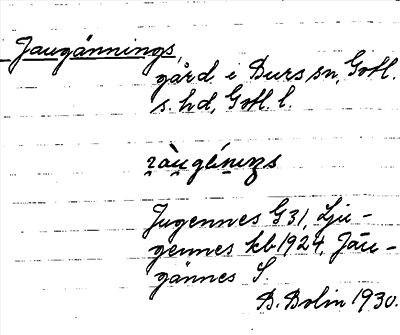 Jaugännings,
gård i Burs sn, Gotl.
s. hd, Gotl. l.
Jugennes G31, Lju-
gennes kb 1924, Jau-
gännes S
B. Bolin 1930.